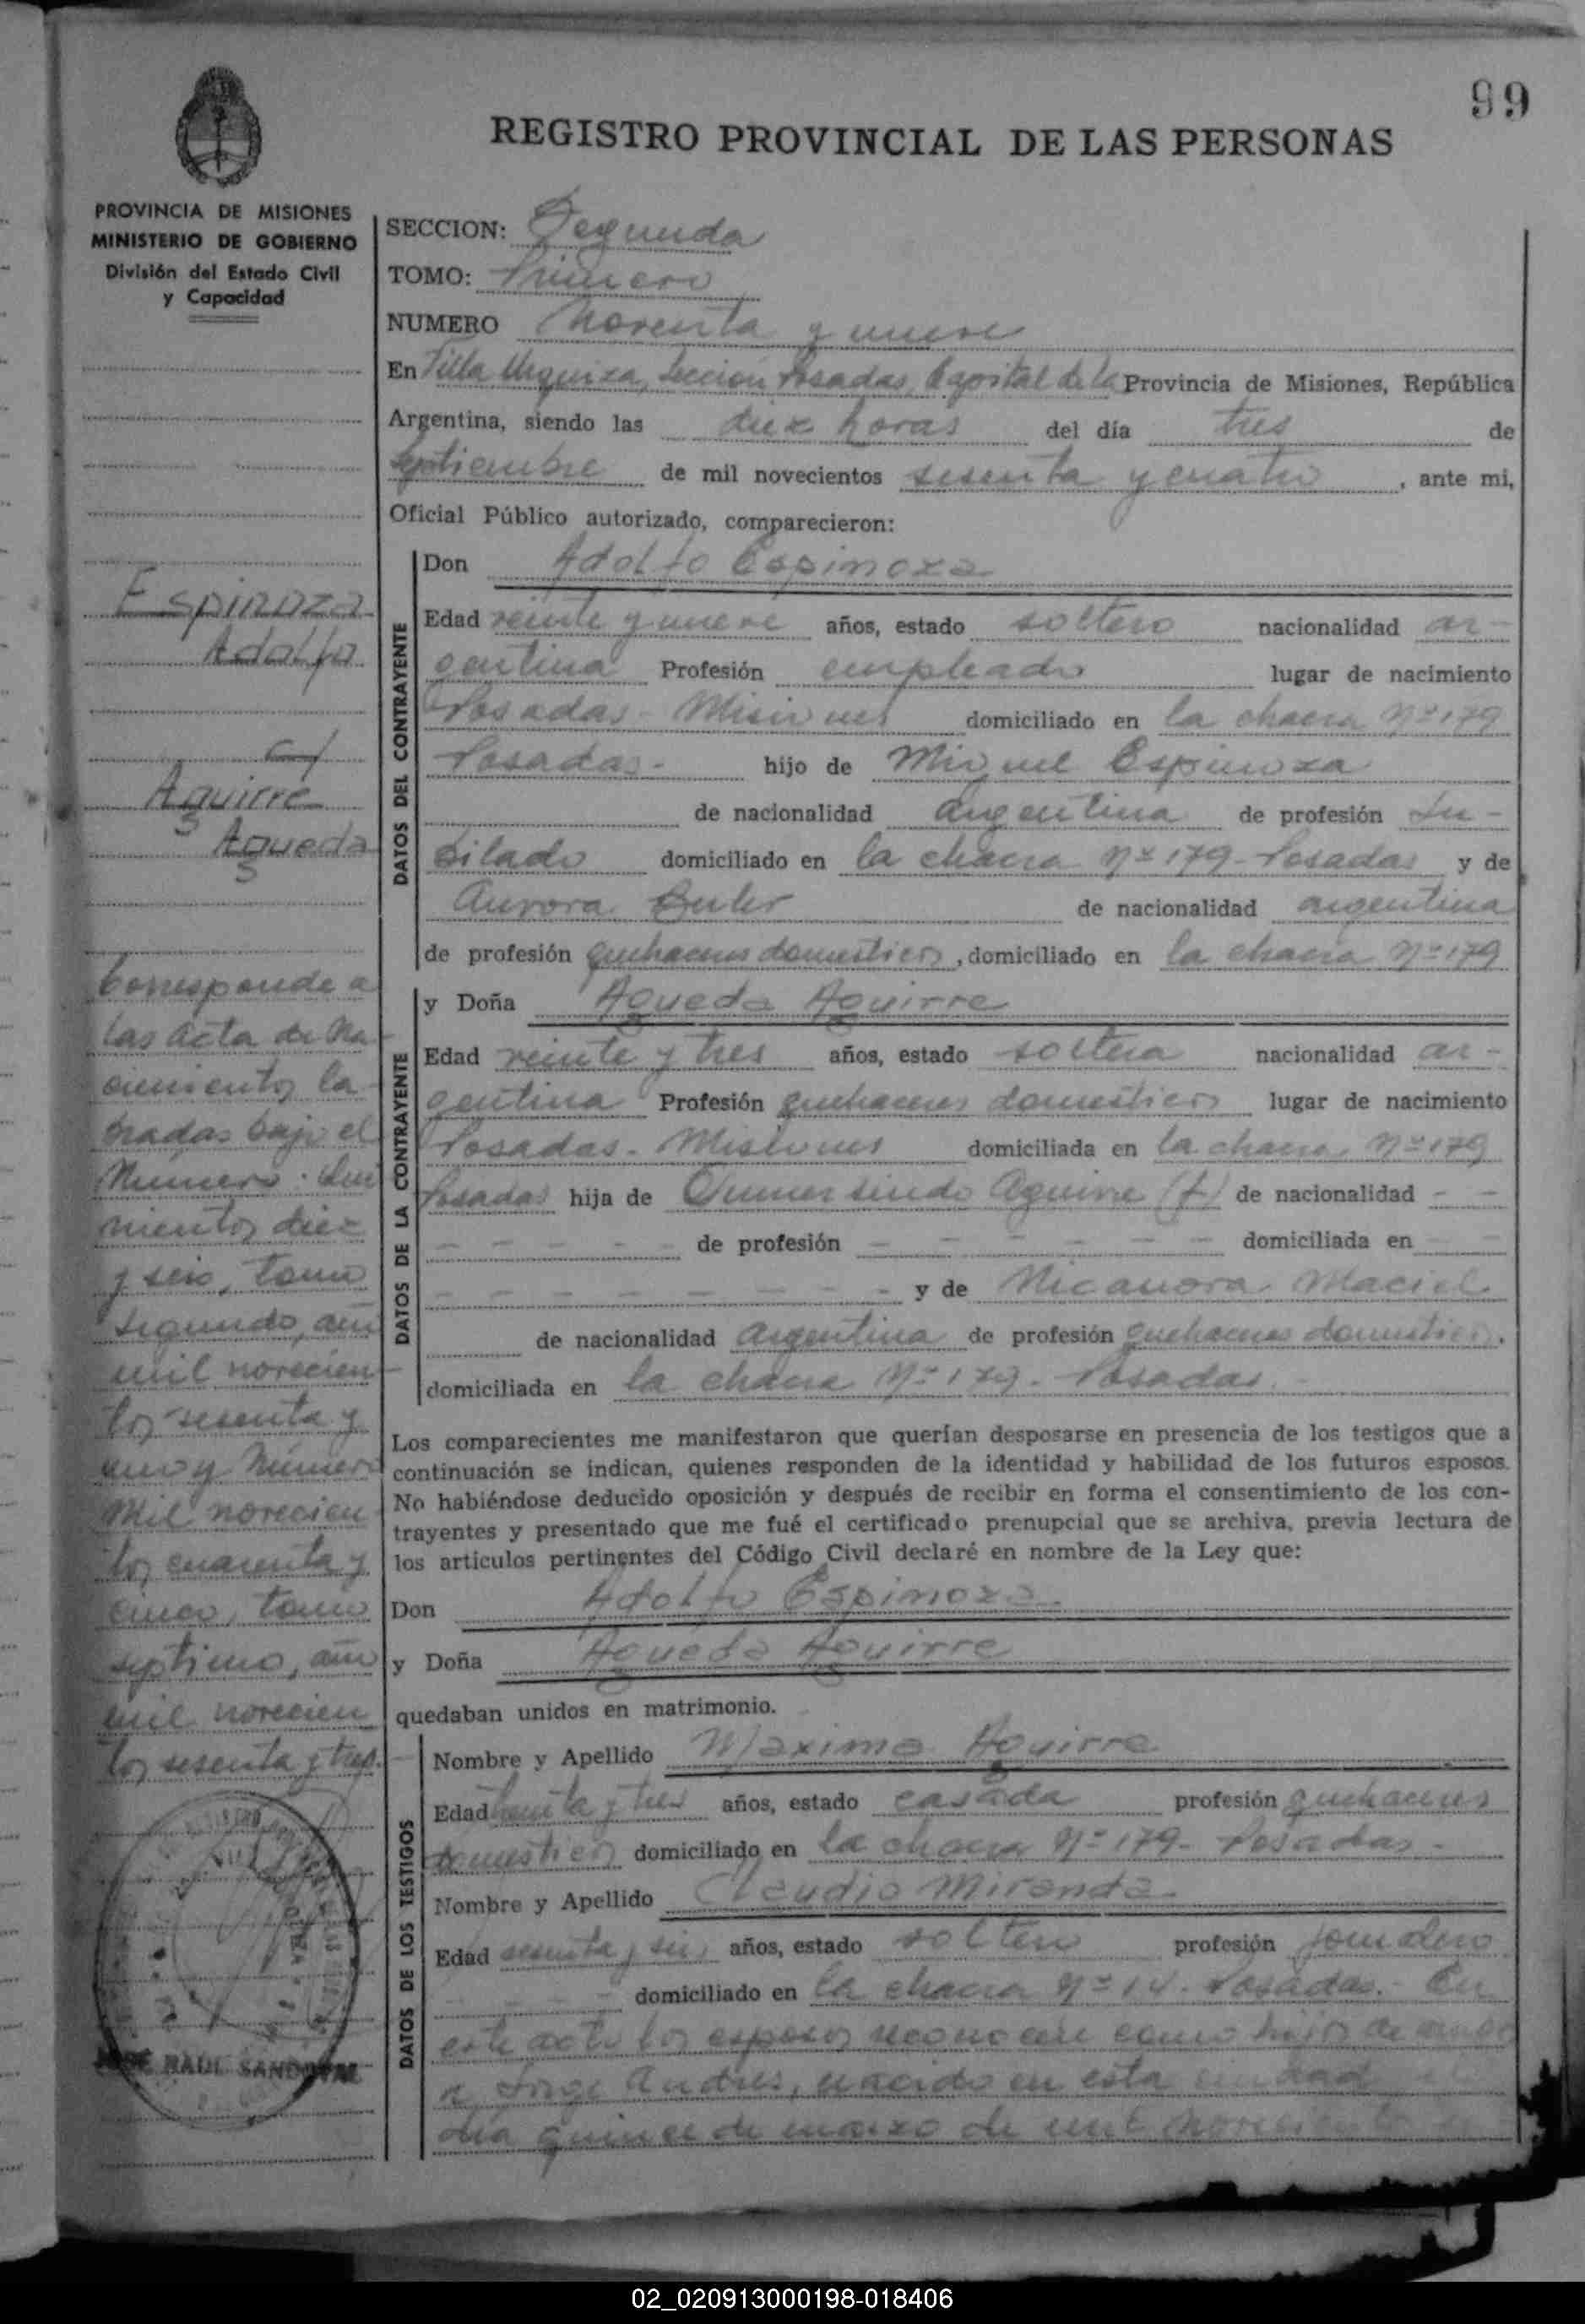 99
REGISTRO PROVINCIAL DE LAS PERSONAS
PROVINCIA DE MISIONES
MINISTERIO DE GOBIERNO
División del Estado Civil
y Capacidad
SECCION: Segunda
TOMO: Primero
NUMERO Noventa y nueve
En Villa Urquiza, Sección Posadas, Capital de la Provincia de Misiones, República
Argentina, siendo las diez horas del día tres de
septiembre de mil novecientos sesenta y cuatro, ante mi,
Oficial Público autorizado, comparecieron:
Espinoza
Adolfo
c/
Aguirre
Agueda
Corresponde a
las acta de Na
cimientos la
bradas bajo el
Número:
nientos diez
y seis, tomo
segundo, año
mil novecien
tos sesenta y
uno y Número
mil novecien
tos cuarenta y
cinco, tomo
septimo, año
mil novecien
tos sesenta y tres.
JOSE RAUL SANDOVAL
DATOS DEL CONTRAYENTE
Don Adolfo Espinoza
Edad veinte y nueve años, estado soltero nacionalidad ar-
gentina Profesión empleado lugar de nacimiento
Posadas - Misiones domiciliado en la chacra Nº 179
Posadas.- hijo de Miguel Espinoza
de nacionalidad argentina de profesión Ju-
bilado domiciliado en la chacra Nº 179 - Posadas y de
Aurora de nacionalidad argentina
de profesión quehaceres domesticos, domiciliado en la chacra Nº 179
DATOS DE LA CONTRAYENTE
y Doña Agueda Aguirre
Edad veinte y tres años, estado soltera nacionalidad ar-
gentina Profesión quehaceres domesticos lugar de nacimiento
Posadas - Misiones domiciliada en la chacra Nº 179
Posadas hija de Gumersindo Aguirre (f) de nacionalidad - -
- - - - - de profesión - - - - - - domiciliada en - -
- - - - - - - - y de Nicanora Maciel
de nacionalidad argentina de profesión quehaceres domesticos,
domiciliada en la chacra Nº 179 - Posadas. -
Los comparecientes me manifestaron que querían desposarse en presencia de los testigos que a
continuación se indican, quienes responden de la identidad y habilidad de los futuros esposos.
No habiéndose deducido oposición y después de recibir en forma el consentimiento de los con-
trayentes y presentado que me fué el certificado prenupcial que se archiva, previa lectura de
los articulos pertinentes del Código Civil declaré en nombre de la Ley que:
Don Adolfo Espinoza
y Doña Agueda Aguirre
quedaban unidos en matrimonio.
DATOS DE LOS TESTIGOS
Nombre y Apellido Maxima Aguirre
Edad treinta y tres años, estado casada profesión quehaceres
domesticos domiciliado en la chacra Nº 179 - Posadas -
Nombre y Apellido Claudio Miranda
Edad sesenta y seis años, estado soltero profesión jornalero
domiciliado en la chacra Nº 14 - Posadas.- En
este acto los esposos reconocen como hijos de ambos
a Jorge Andres, nacido en esta ciudad el
día quince de marzo de mil novecientos
02_020913000198-018406